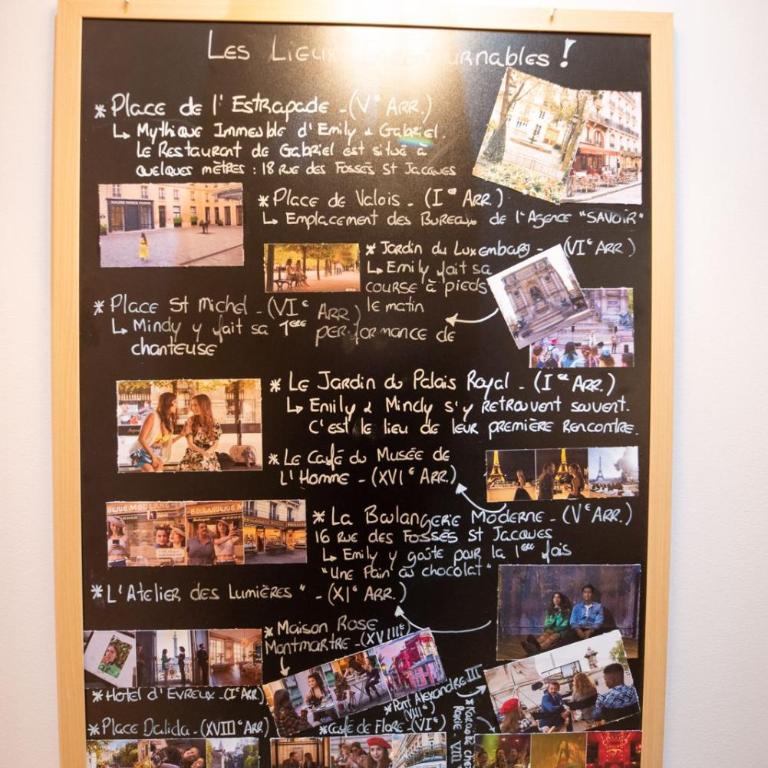 Les Lieux urnables !
* Place de l'Estrapade - (Ve Arr.)
↳ Mythique Immeuble d'Emily & Gabriel.
Le Restaurant de Gabriel est situé à
quelques mètres : 18 rue des Fossés St Jacques
* Place de Valois - (Ier Arr.)
↳ Emplacement des Bureaux de l'Agence "SAVOIR"
* Jardin du Luxembourg - (VIe Arr.)
↳ Emily fait sa
course à pieds
le matin
* Place St Michel - (VIe Arr.)
↳ Mindy y fait sa 1ère performance de
chanteuse
* Le Jardin du Palais Royal - (Ier Arr.)
↳ Emily & Mindy s'y retrouvent souvent.
C'est le lieu de leur première rencontre.
* Le Café du Musée de
l'Homme - (XVIe Arr.)
* La Boulangerie Moderne - (Ve Arr.)
16 rue des Fossés St Jacques
↳ Emily y goûte pour la 1ère fois
"Une Pain au chocolat"
* L'Atelier des Lumières" - (XIe Arr.)
* Maison Rose
Montmartre - (XVIIIe)
* Hotel d'Evreux - (Ier Arr.)
* Pont Alexandre III
(VIIIe)
* Place Dalida - (XVIIIe Arr.)
* Café de Flore - (VIe)
* Karaoké chez
Rosie - VIII